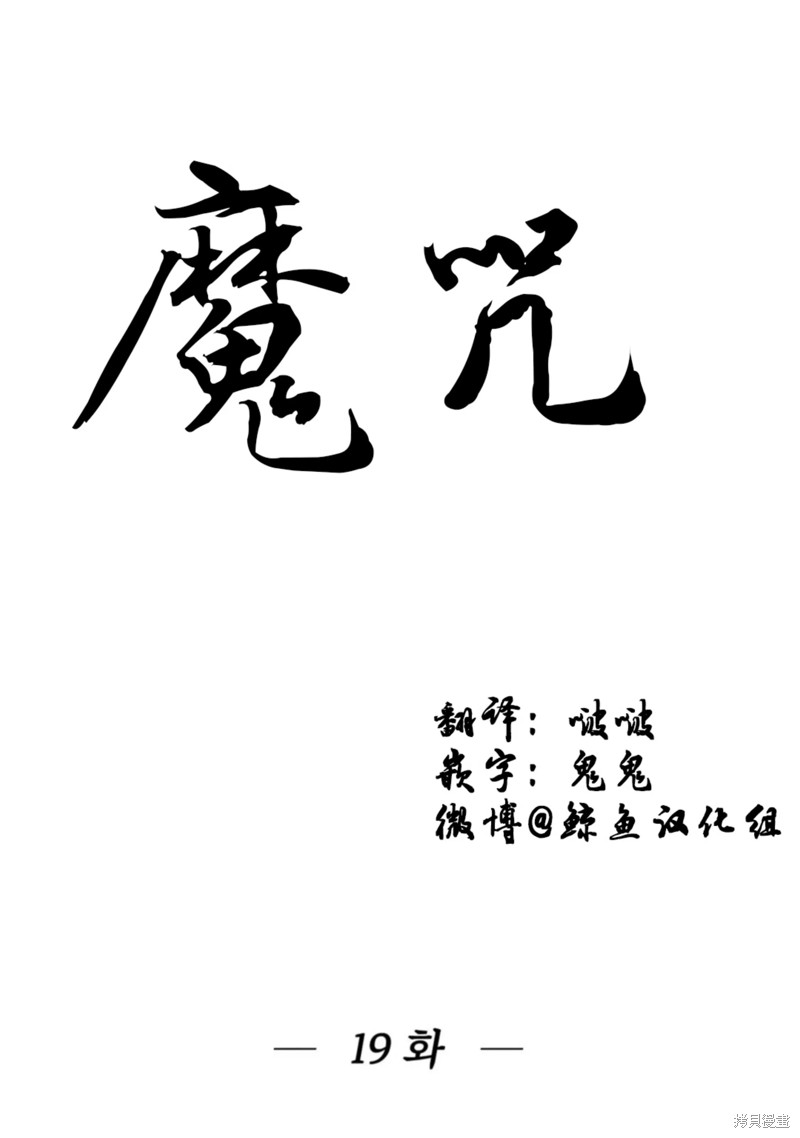 魔咒
翻译：啵啵
嵌字：鬼鬼
微博@鲸鱼汉化组
— 19 화 —
拷貝漫畫